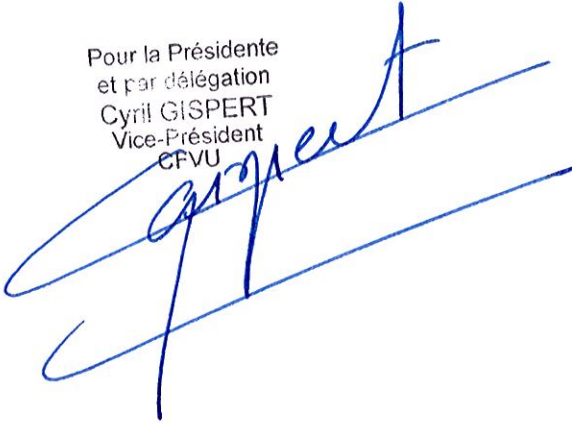 Pour la Présidente
et par délégation
Cyril GISPERT
Vice-Président
CFVU